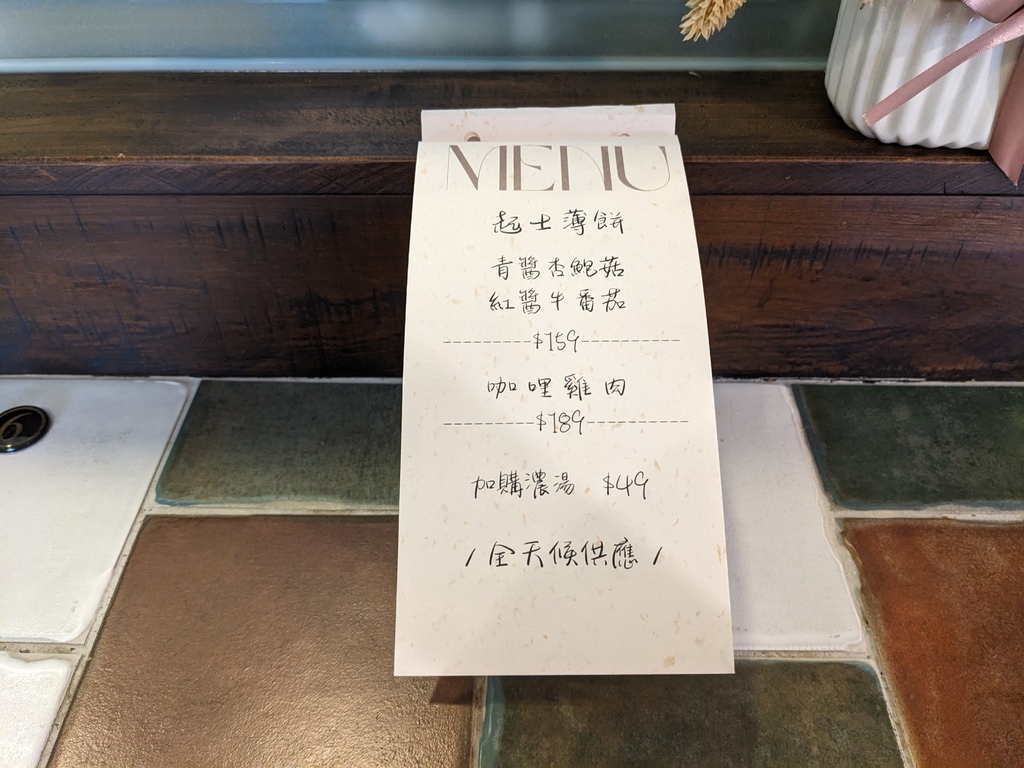 MENU
起士薄餅
青醬杏鮑菇
紅醬牛番茄
---------$159----------
咖哩雞肉
---------$189----------
加購濃湯 $49
/全天候供應/
6